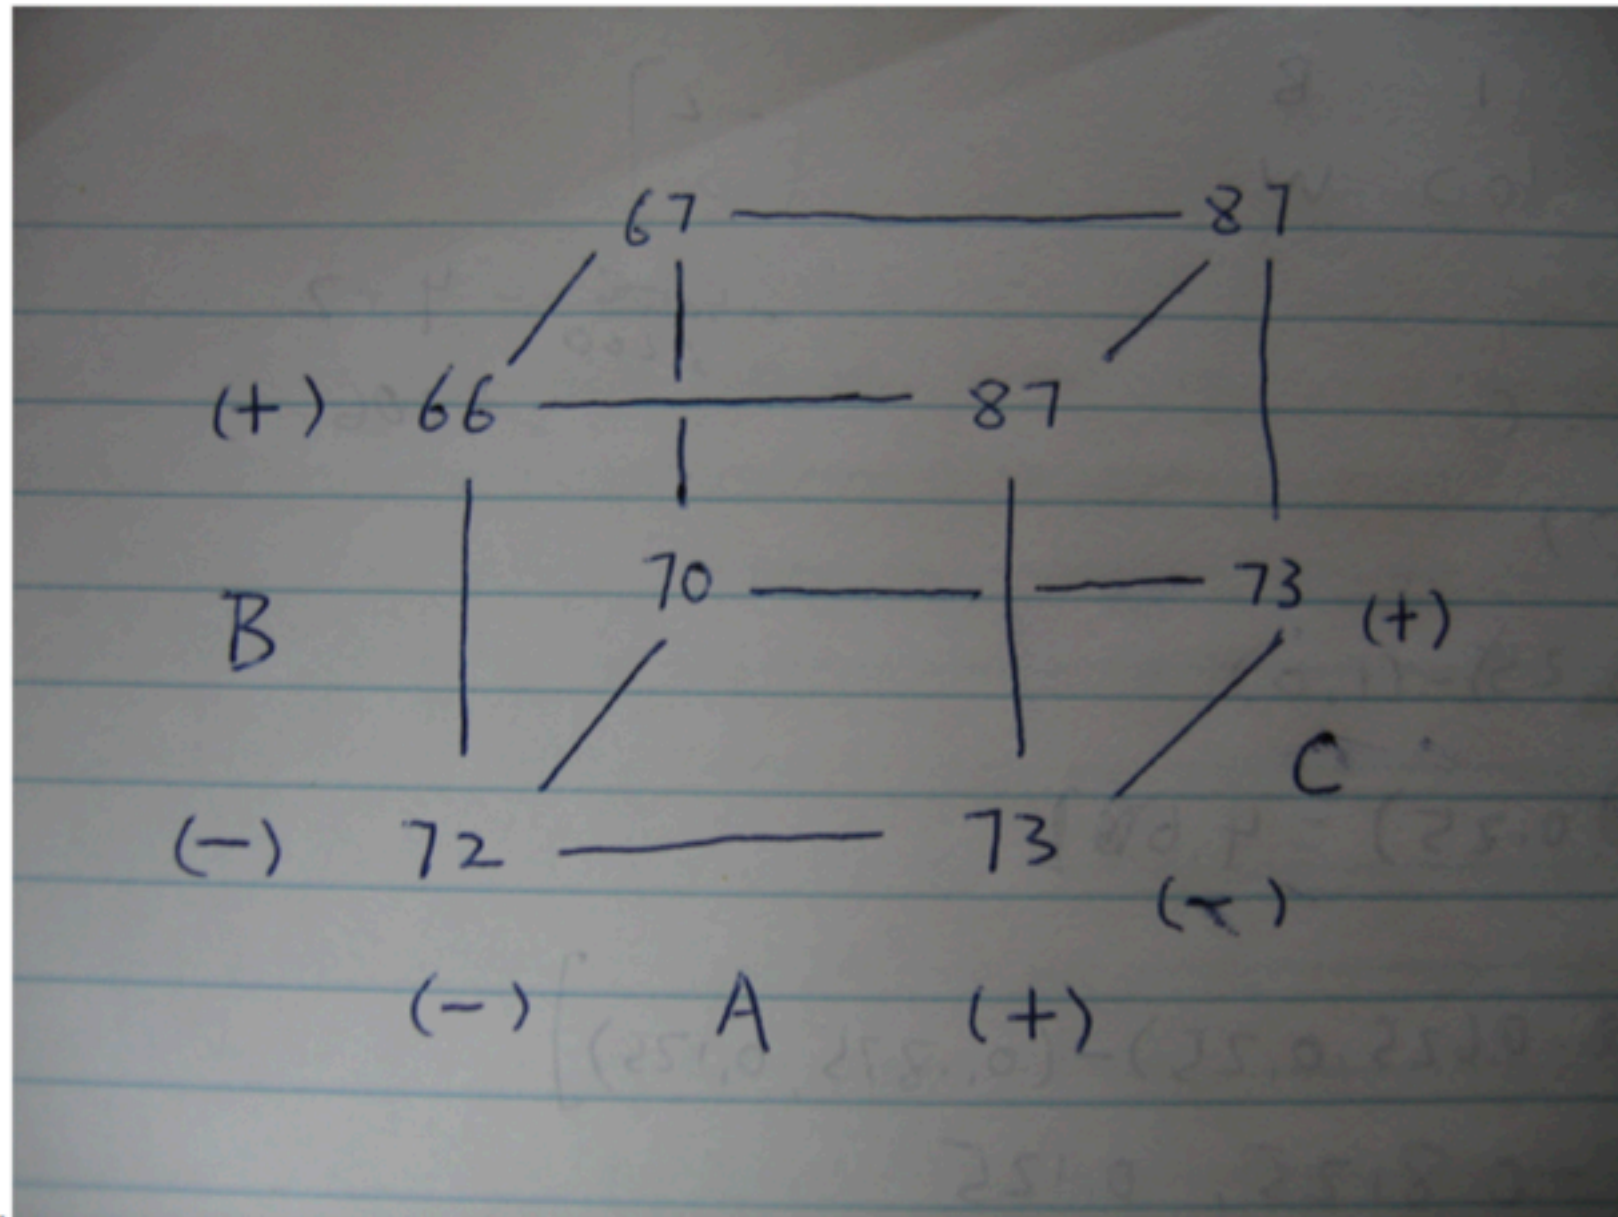 67 87
(+) 66 87
70 73 (+)
B
C
(-) 72 73
(-)
(-) A (+)